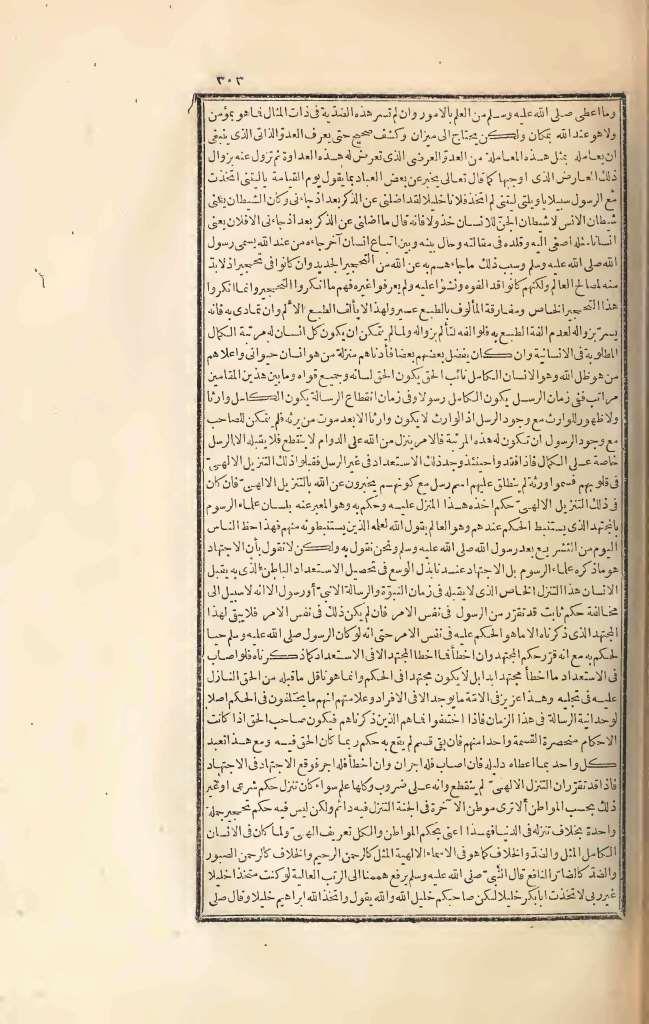 ٣٠٣
وما اعطى صلى الله عليه وسلم من العلم بالامور وان لم تسر هذه الضدية فى ذات المثال فما هو بمؤمن
ولا هو عند الله بمكان ولكن يحتاج الى ميزان وكشف صحيح حتى يعرف العدو الذاتى الذى ينبغى
ان يعامله بمثل هذه المعاملة من العدو العرضى الذى تعرض له هذه العداوة ثم تزول عنه بزوال
ذلك العارض الذى اوجبها كما قال تعالى يخبر عن بعض العباد بما يقول يوم القيامة ياليتنى اتخذت
مع الرسول سبيلا ياويلتى ليتنى لم اتخذ فلانا خليلا لقد اضلنى عن الذكر بعد اذ جاءنى وكان الشيطان يعنى
شيطان الانس لا شيطان الجن للانسان خذولا فانه قال ما اضلنى عن الذكر بعد اذ جاءنى الافلان يعنى
انسانا مثله اصغى اليه وقلده فى مقالته وحال بينه وبين اتباع انسان آخر جاء من عند الله يسمى رسول
الله صلى الله عليه وسلم وسبب ذلك ما جاءهم به عن الله من التحجير الجديد وان كانوا فى تحجير اذ لابد
منه لمصالح العالم ولكنهم كانوا قد الفوه ونشؤا عليه ولم يعرفوا غيره فهم ما انكروا التحجير وانما انكروا
هذا التحجير الخاص ومفارقة المألوف بالطبع عسير ولهذا لا يألف الطبع الألم وان تمادى به فانه
يسر بزواله لعدم الفة الطبع به فلو الفه لتألم بزواله ولما لم يتمكن ان يكون كل انسان له مرتبة الكمال
المطلوبة فى الانسانية وان كان يفضل بعضهم بعضا فأدناهم منزلة من هو انسان حيوانى واعلاهم
من هو ظل الله وهو الانسان الكامل نائب الحق يكون الحق لسانه وجميع قواه وما بين هذين المقامين
مراتب ففى زمان الرسل يكون الكامل رسولا وفى زمان انقطاع الرسالة يكون الكامل وارثا
ولا ظهور للوارث مع وجود الرسول اذ الوارث لا يكون وارثا الا بعد موت من يرثه فلم يتمكن للصاحب
مع وجود الرسول ان تكون له هذه المرتبة فالامر ينزل من الله على الدوام لا ينقطع فلا يقبله الا الرسل
خاصة على الكمال فاذا فقدوا حينئذ وجد ذلك الاستعداد فى غير الرسل فقبلوا ذلك التنزيل الالهى
فى قلوبهم فسموا ورثة لم ينطلق عليهم اسم رسل مع كونهم يخبرون عن الله بالتنزيل الالهى فان كان
فى ذلك التنزيل الالهى حكم اخذه هذا المنزل عليه وحكم به وهو المعبر عنه بلسان علماء الرسوم
بالمجتهد الذى يستنبط الحكم عندهم وهو العالم بقول الله لعلمه الذين يستنبطونه منهم فهذا حظ الناس
اليوم من التشريع بعد رسول الله صلى الله عليه وسلم ونحن نقول به ولكن لا نقول بأن الاجتهاد
هو ما ذكره علماء الرسوم بل الاجتهاد عندنا بذل الوسع فى تحصيل الاستعداد الباطن الذى به يقبل
الانسان هذا التنزل الخاص الذى لا يقبله فى زمان النبوة والرسالة الا نبى أو رسول الا انه لا سبيل الى
مخالفة حكم ثابت قد تقرر من الرسول فى نفس الامر فان لم يكن ذلك فى نفس الامر فلا يلقى لهذا
المجتهد الذى ذكرناه الا ما هو الحكم عليه فى نفس الامر حتى انه لو كان الرسول صلى الله عليه وسلم حيا
لحكم به مع انه قرر حكم المجتهد وان اخطأ فما اخطا المجتهد الا فى الاستعداد كما ذكرناه فلو اصاب
فى الاستعداد ما اخطأ مجتهد ابدا بل لا يكون مجتهدا فى الحكم وانما هو ناقل ما قبله من الحق النازل
عليه فى تجليه وهذا عزيز فى الامة ما يوجد الا فى الافراد وعلامتهم انهم ما يختلفون فى الحكم اصلا
لوحدانية الرسالة فى هذا الزمان فاذا اختلفوا فما هم الذين ذكرناهم فيكون صاحب الحق اذا كانت
الاحكام منحصرة القسمة واحدا منهم فان بقى قسم لم يقع به حكم ربما كان الحق فيه ومع هذا تعبد
كل واحد بما اعطاه دليله فان اصاب فله اجران وان اخطأ فله اجر فوقع الاجتهاد فى الاجتهاد
فاذا قد تقرر ان التنزل الالهى لم ينقطع وانه على ضروب وكلها علم سواء كان تنزل حكم شرعى اوغير
ذلك بحسب المواطن ألا ترى موطن الآخرة فى الجنة التنزل فيه دائم ولكن ليس فيه حكم تحجير جملة
واحدة بخلاف تنزله فى الدنيا فهذا اعنى بحكم المواطن والكل تعريف الهى ولما كان فى الانسان
الكامل المثل والضد والخلاف كما هو فى الاسماء الالهية المثل كالرحمن الرحيم والخلاف كالرحمن الصبور
والضد كالضار والنافع قال النبى صلى الله عليه وسلم يرفع هممنا الى الرتب العالية لو كنت متخذا خليلا
غير ربى لاتخذت ابا بكر خليلا لكن صاحبكم خليل الله والله يقول واتخذ الله ابراهيم خليلا وقال صلى